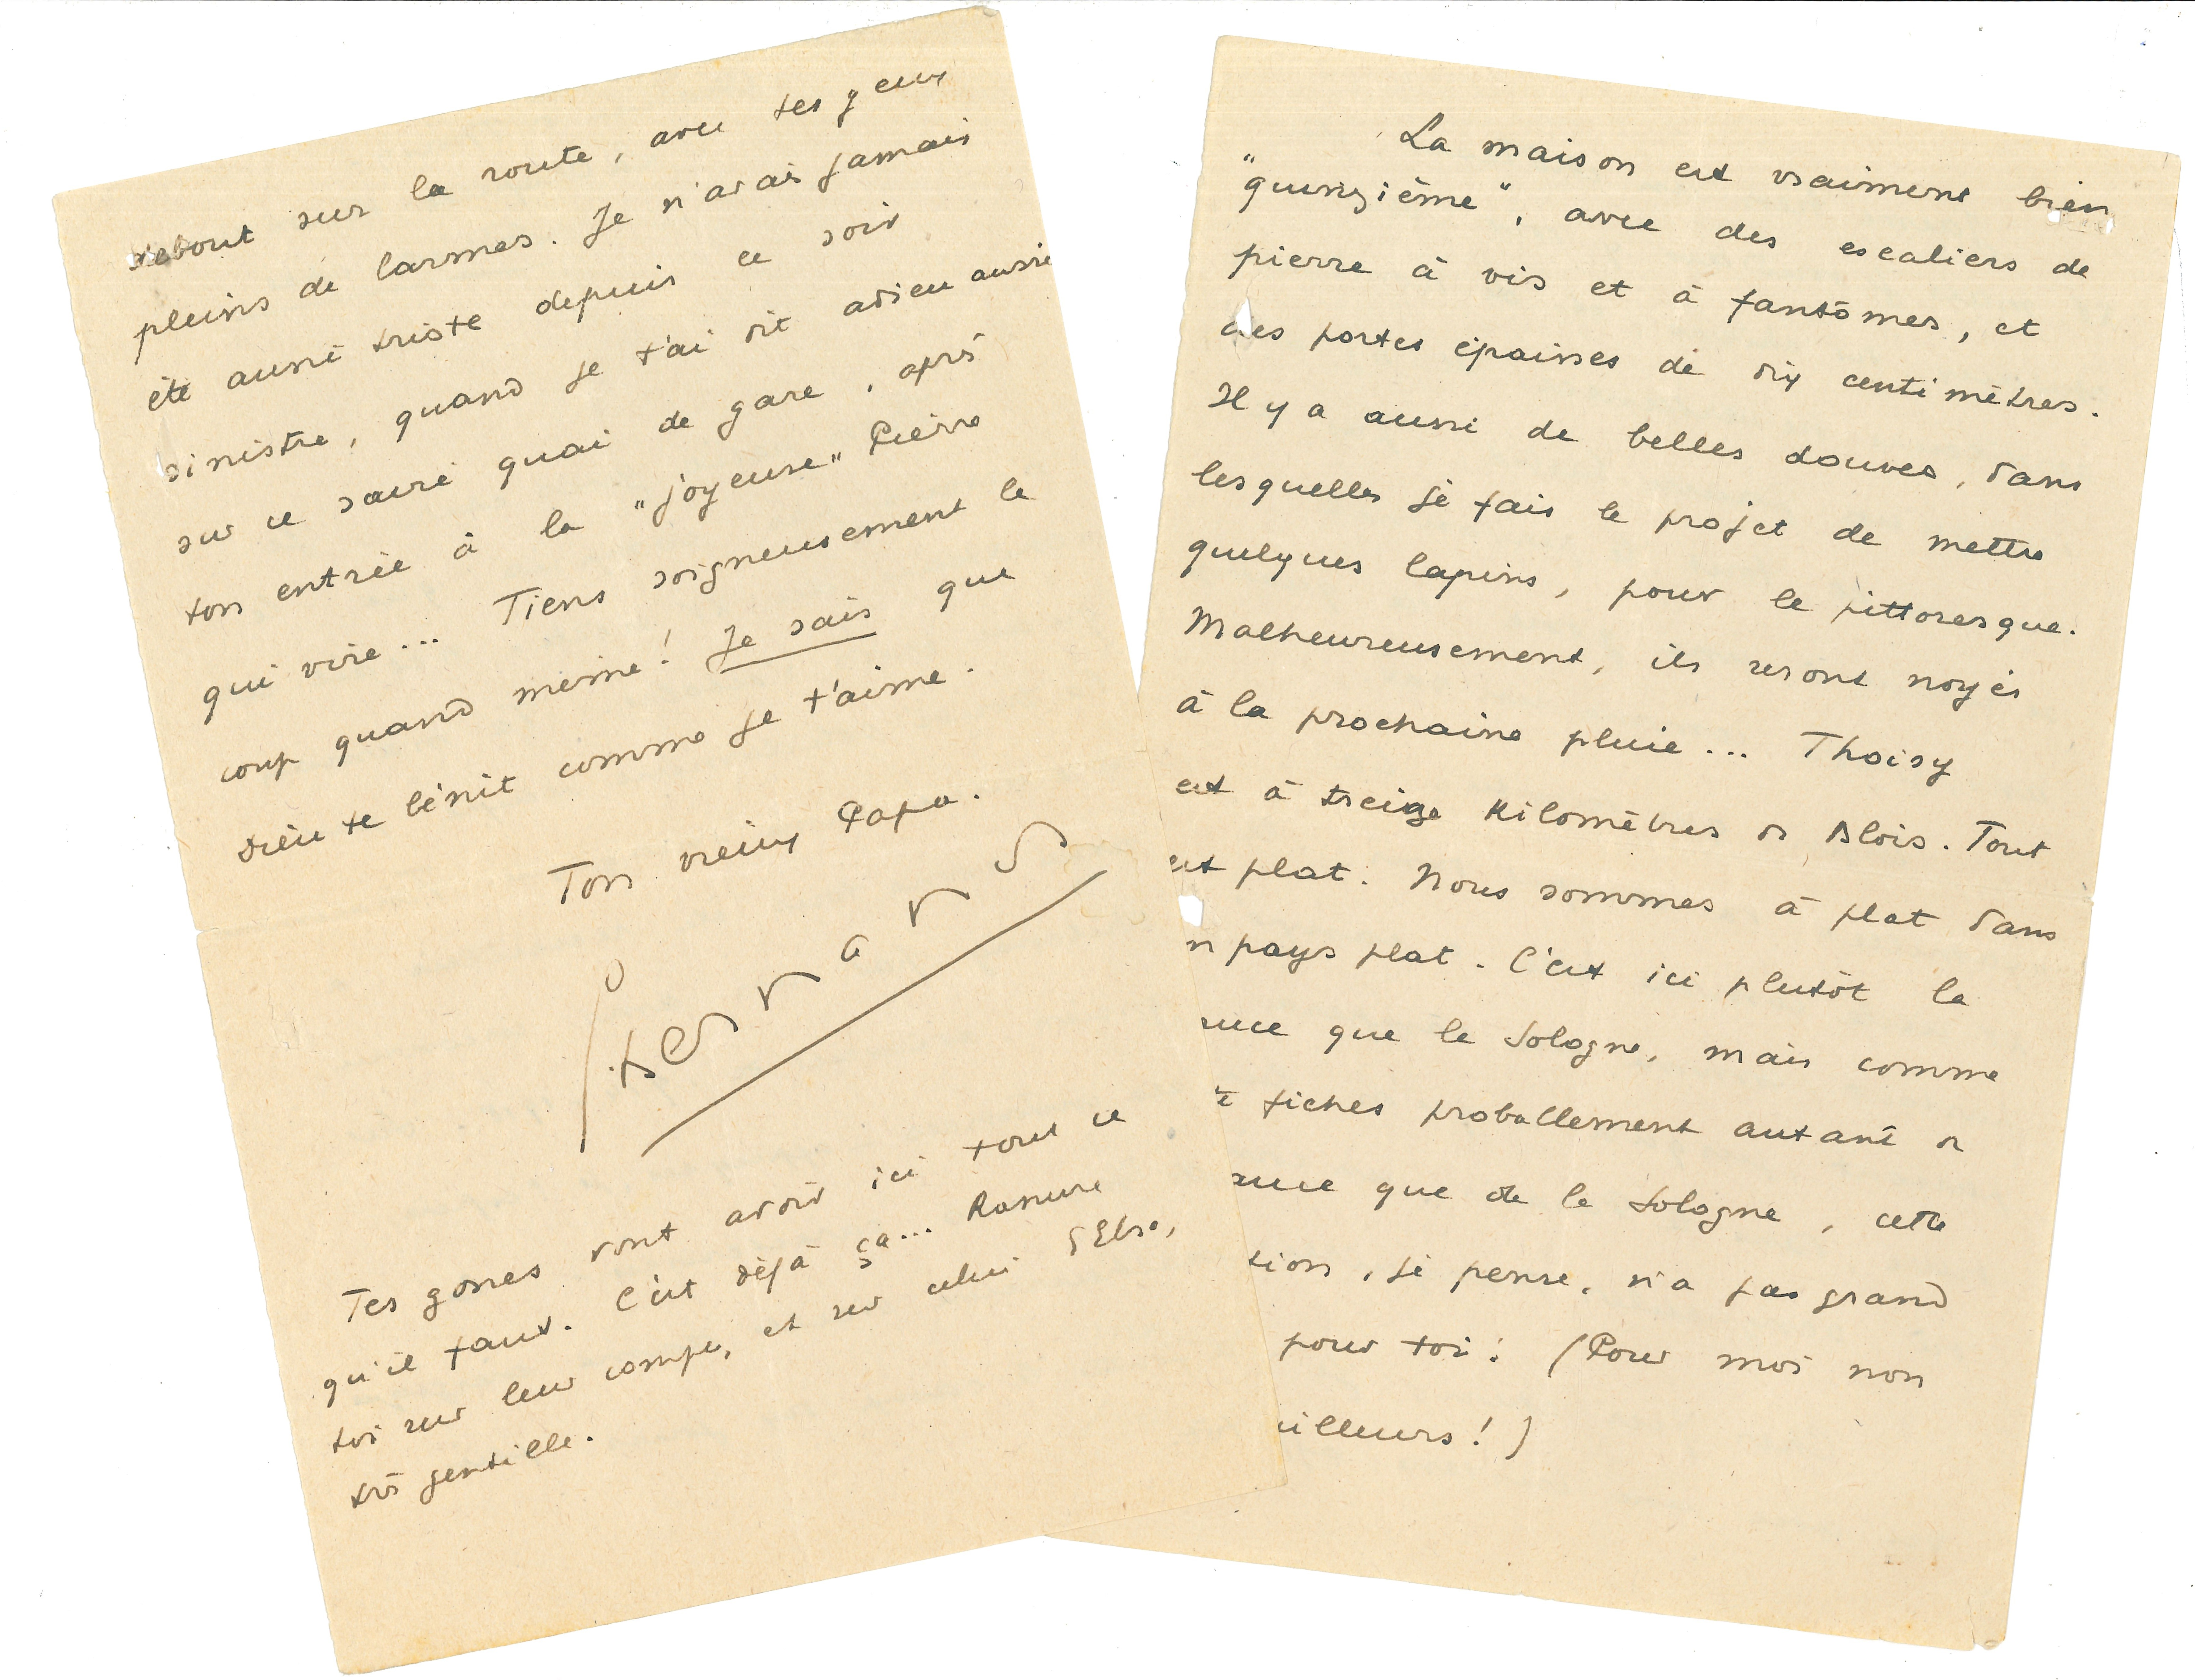 debout sur la route, avec tes yeux
pleins de larmes. Je n'avais jamais
été aussi triste depuis ce soir
sinistre, quand je t'ai dit adieu aussi
sur ce sacré quai de gare, après
ton entrée à la "joyeuse" Pierre
qui vire... Tiens soigneusement le
coup quand même! Je sais que
Dieu te bénit comme je t'aime.
Ton vieux Papa.
Tes gosses vont avoir ici tout ce
qu'il faut. C'est déjà ça... Rassure
toi sur leur compte, et sur celui
très gentille.
La maison est vraiment bien
"quinzième", avec des escaliers de
pierre à vis et à fantômes, et
des portes épaisses de dix centimètres.
Il y a aussi de belles douves, dans
lesquelles je fais le projet de mettre
quelques lapins, pour le pittoresque.
Malheureusement, ils seront noyés
à la prochaine pluie... Thoisy
est à treize Kilomètres de Blois. Tout
est plat. Nous sommes à plat dans
n pays plat. C'est ici plutôt la
uce que la Sologne, mais comme
te fiches probablement autant de
uce que de la Sologne, cette
tion, je pense, n'a pas grand
pour toi! (Pour moi non
ailleurs!)